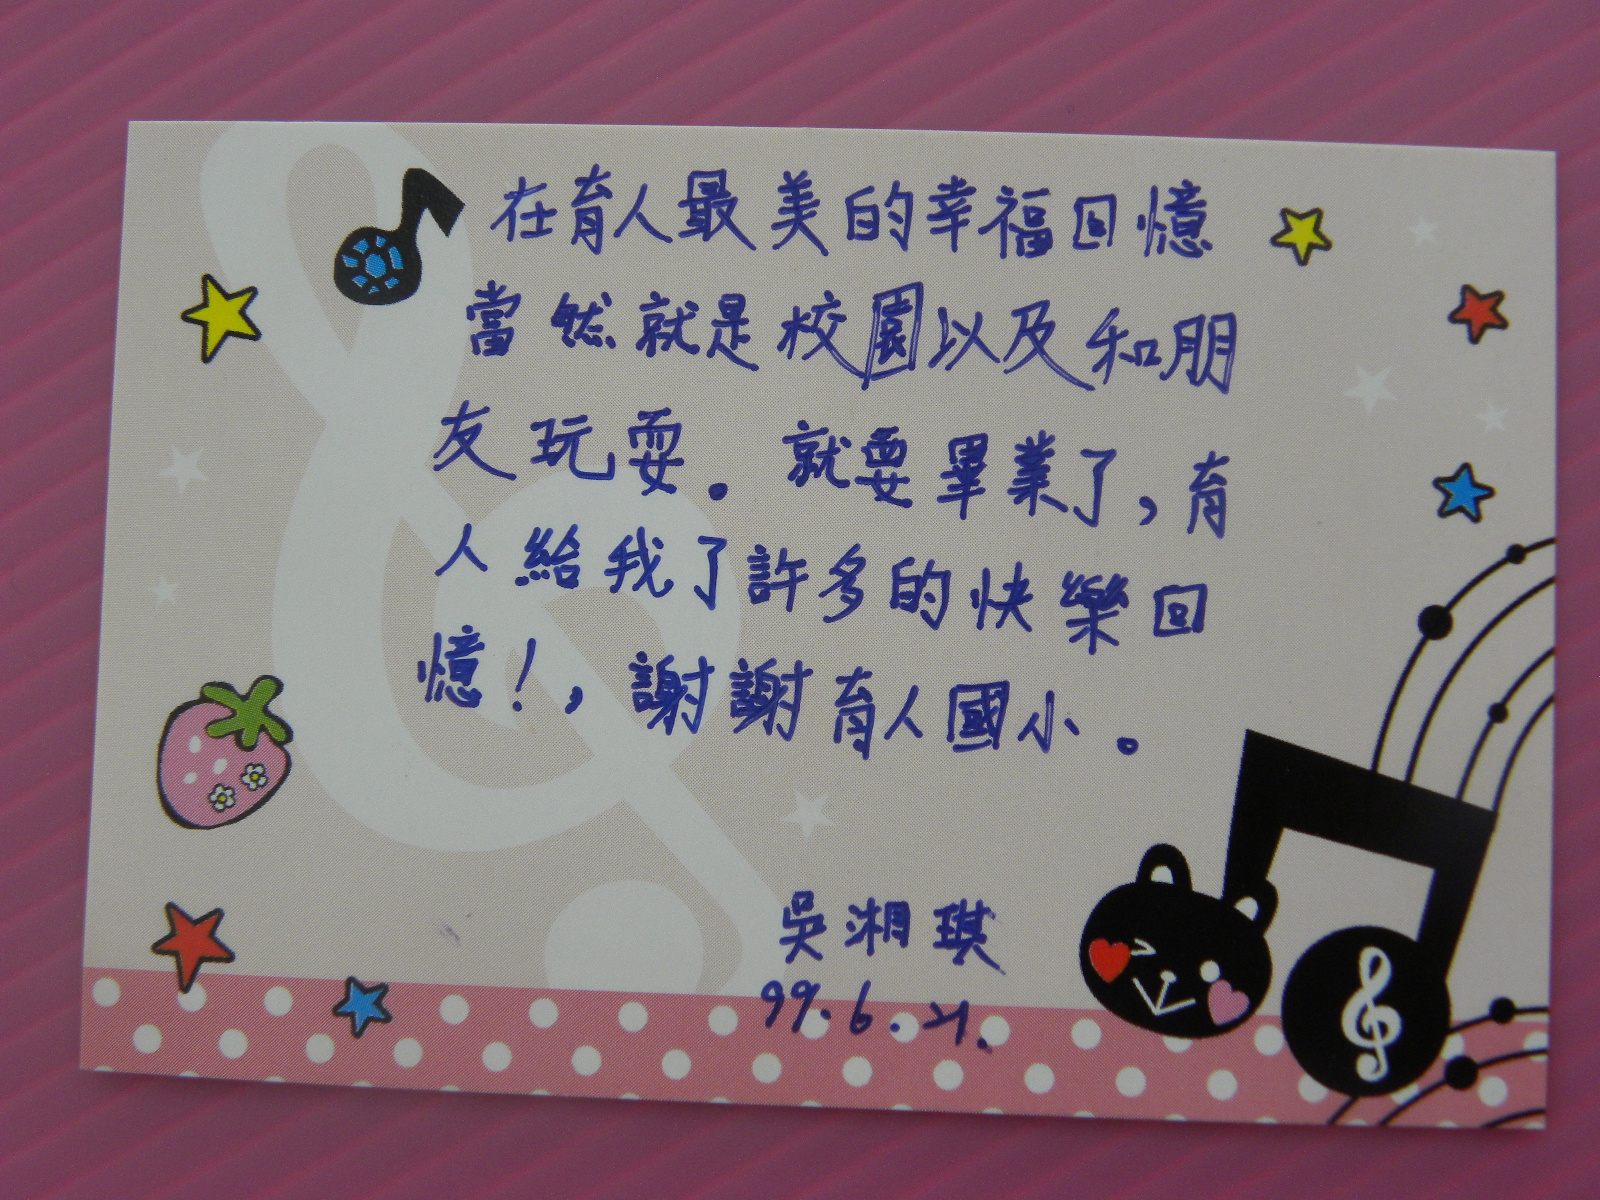 在育人最美的幸福回憶
當然就是校園以及和朋
友玩耍。就要畢業了,育
人給我了許多的快樂回
憶!,謝謝育人國小。
吳湘琪
99.6.21.